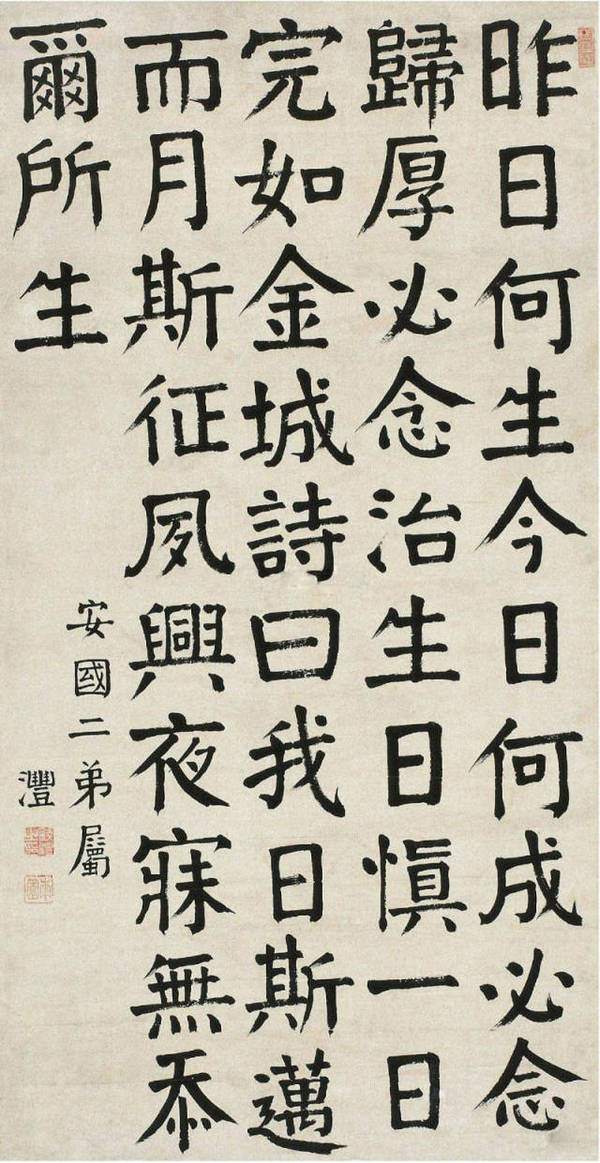 昨日何生今日何成必念
歸厚必念治生日慎一日
完如金城詩曰我日斯邁
而月斯征夙興夜寐無忝
爾所生
安國二弟屬
灃